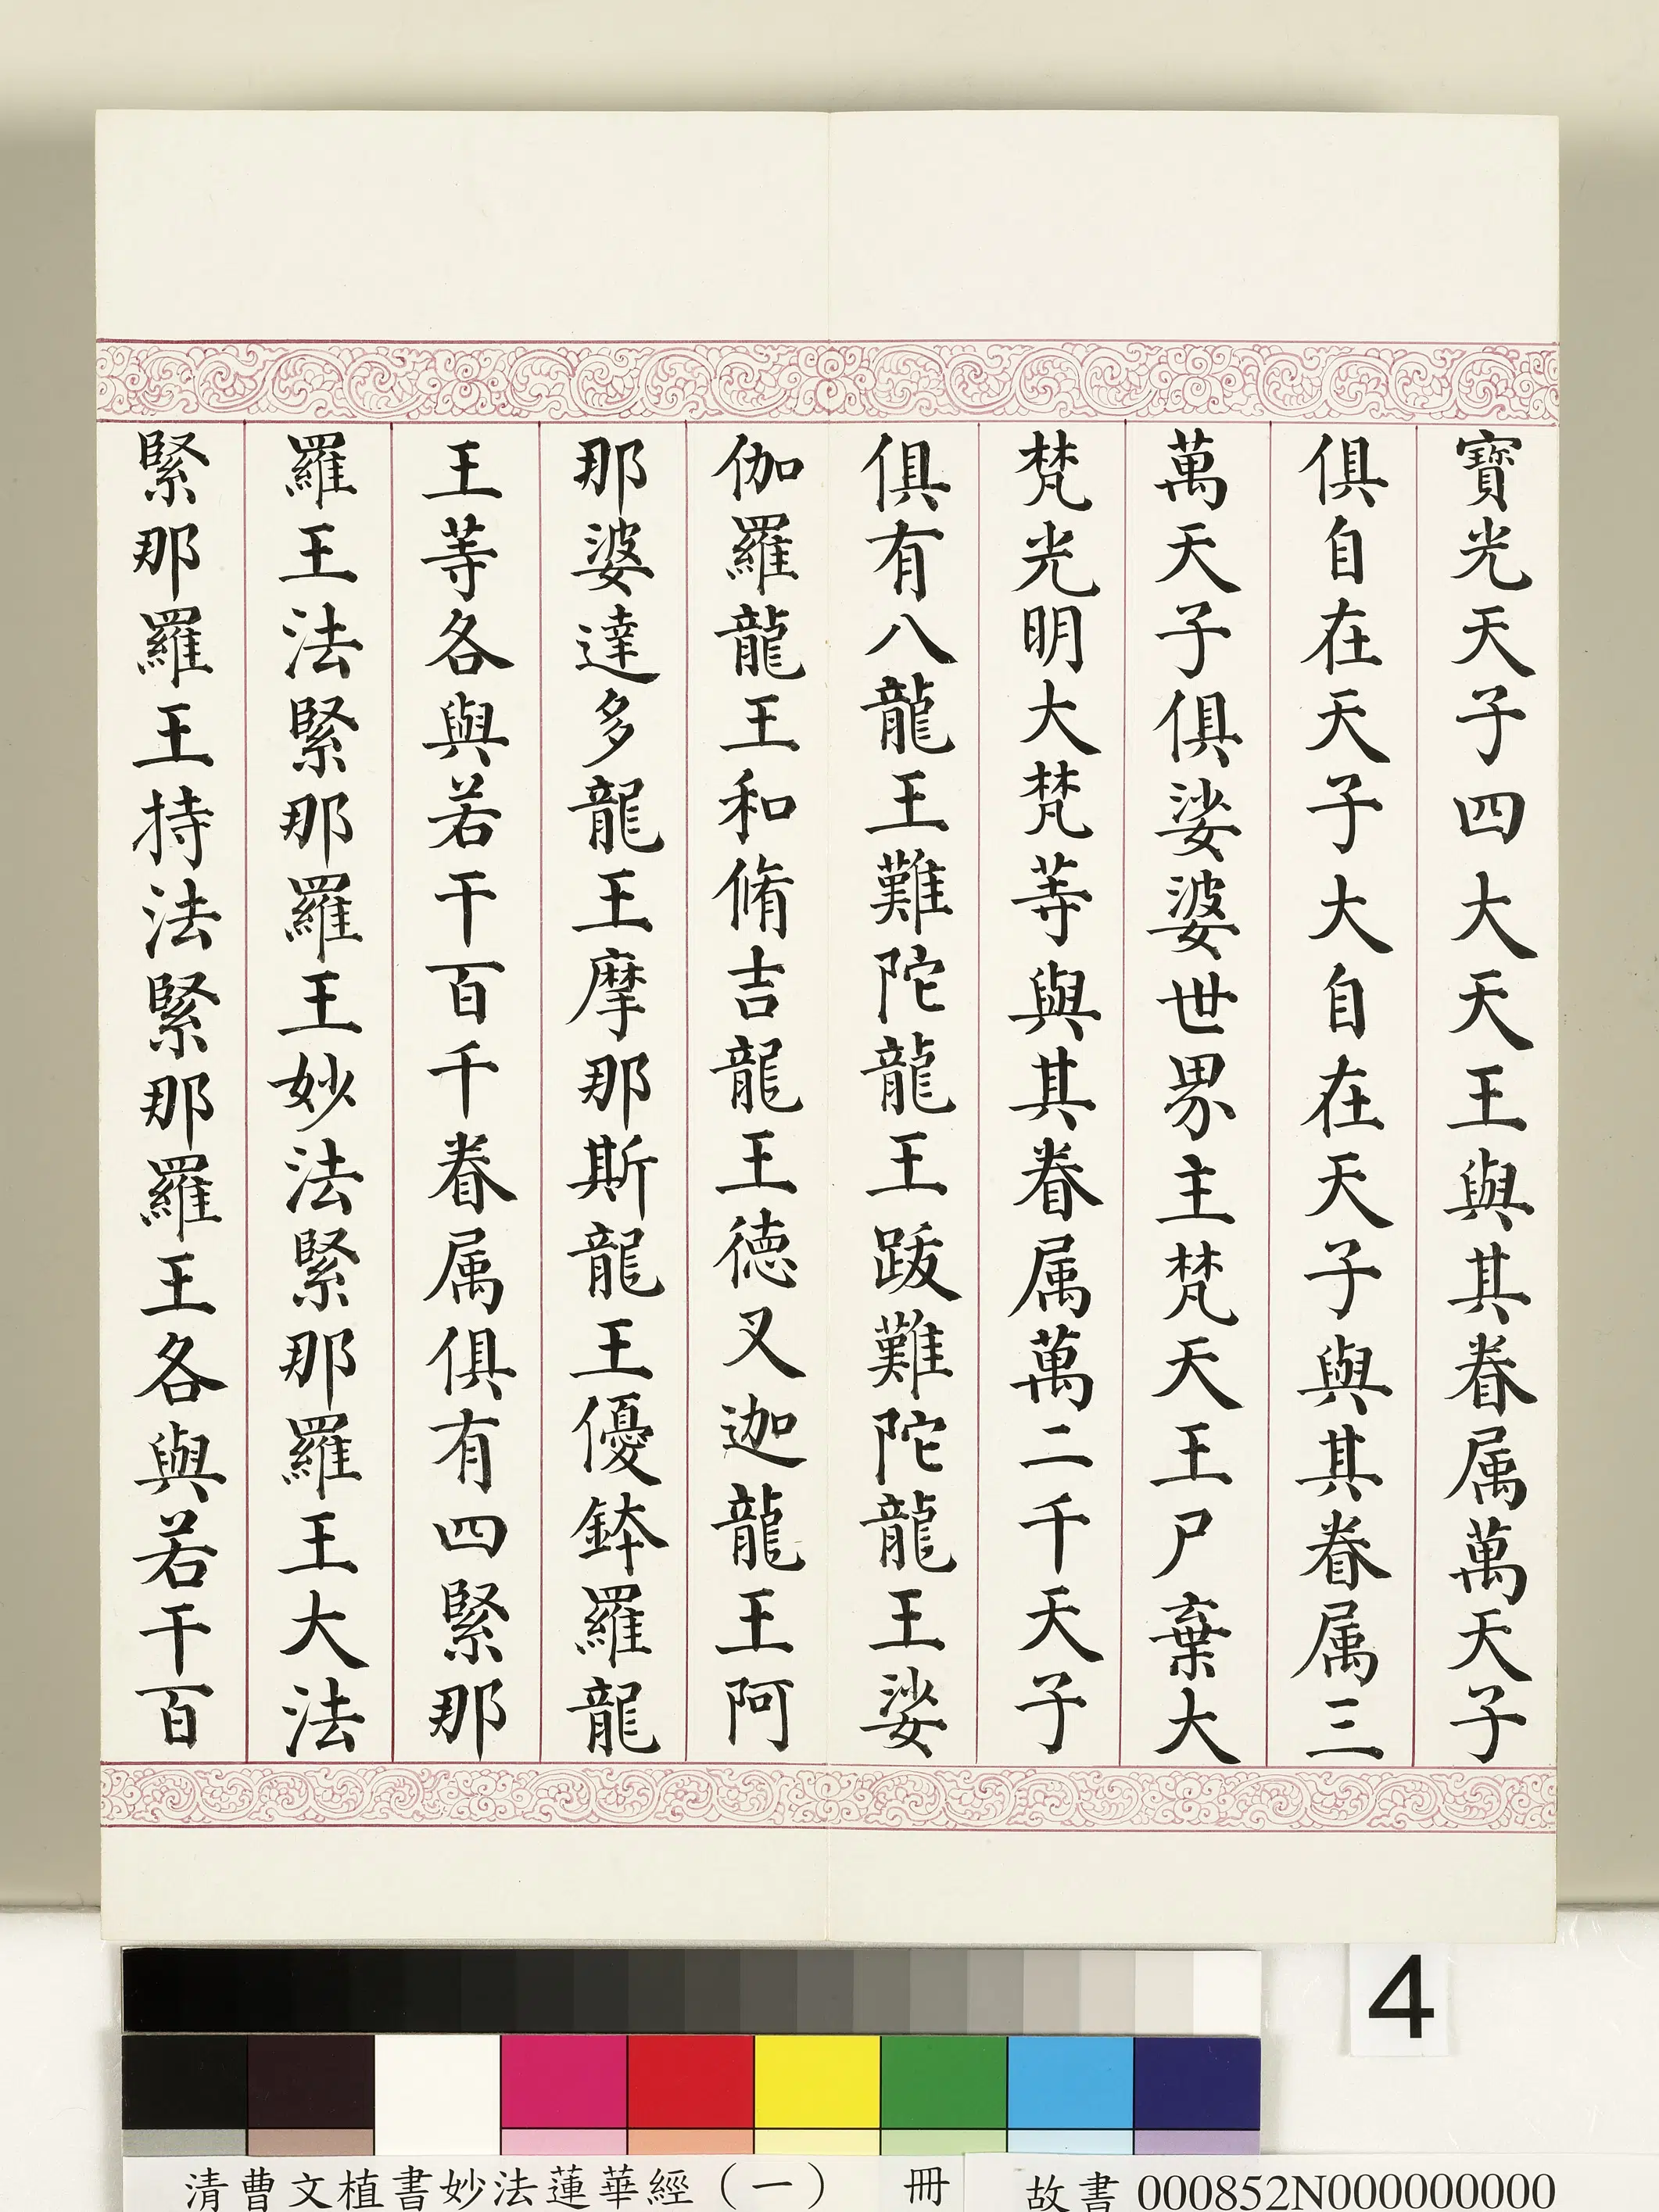 寶光天子四大天王與其眷属萬天子
俱自在天子大自在天子與其眷属三
萬天子俱娑婆世界主梵天王尸棄大
梵光明大梵等與其眷属萬二千天子
俱有八龍王難陀龍王跋難陀龍王娑
伽羅龍王和脩吉龍王德叉迦龍王阿
那婆達多龍王摩那斯龍王優鉢羅龍
王等各與若干百千眷属俱有四緊那
羅王法緊那羅王妙法緊那羅王大法
緊那羅王持法緊那羅王各與若干百
4
清曹文植書妙法蓮華經（一） 冊 故書000852N000000000